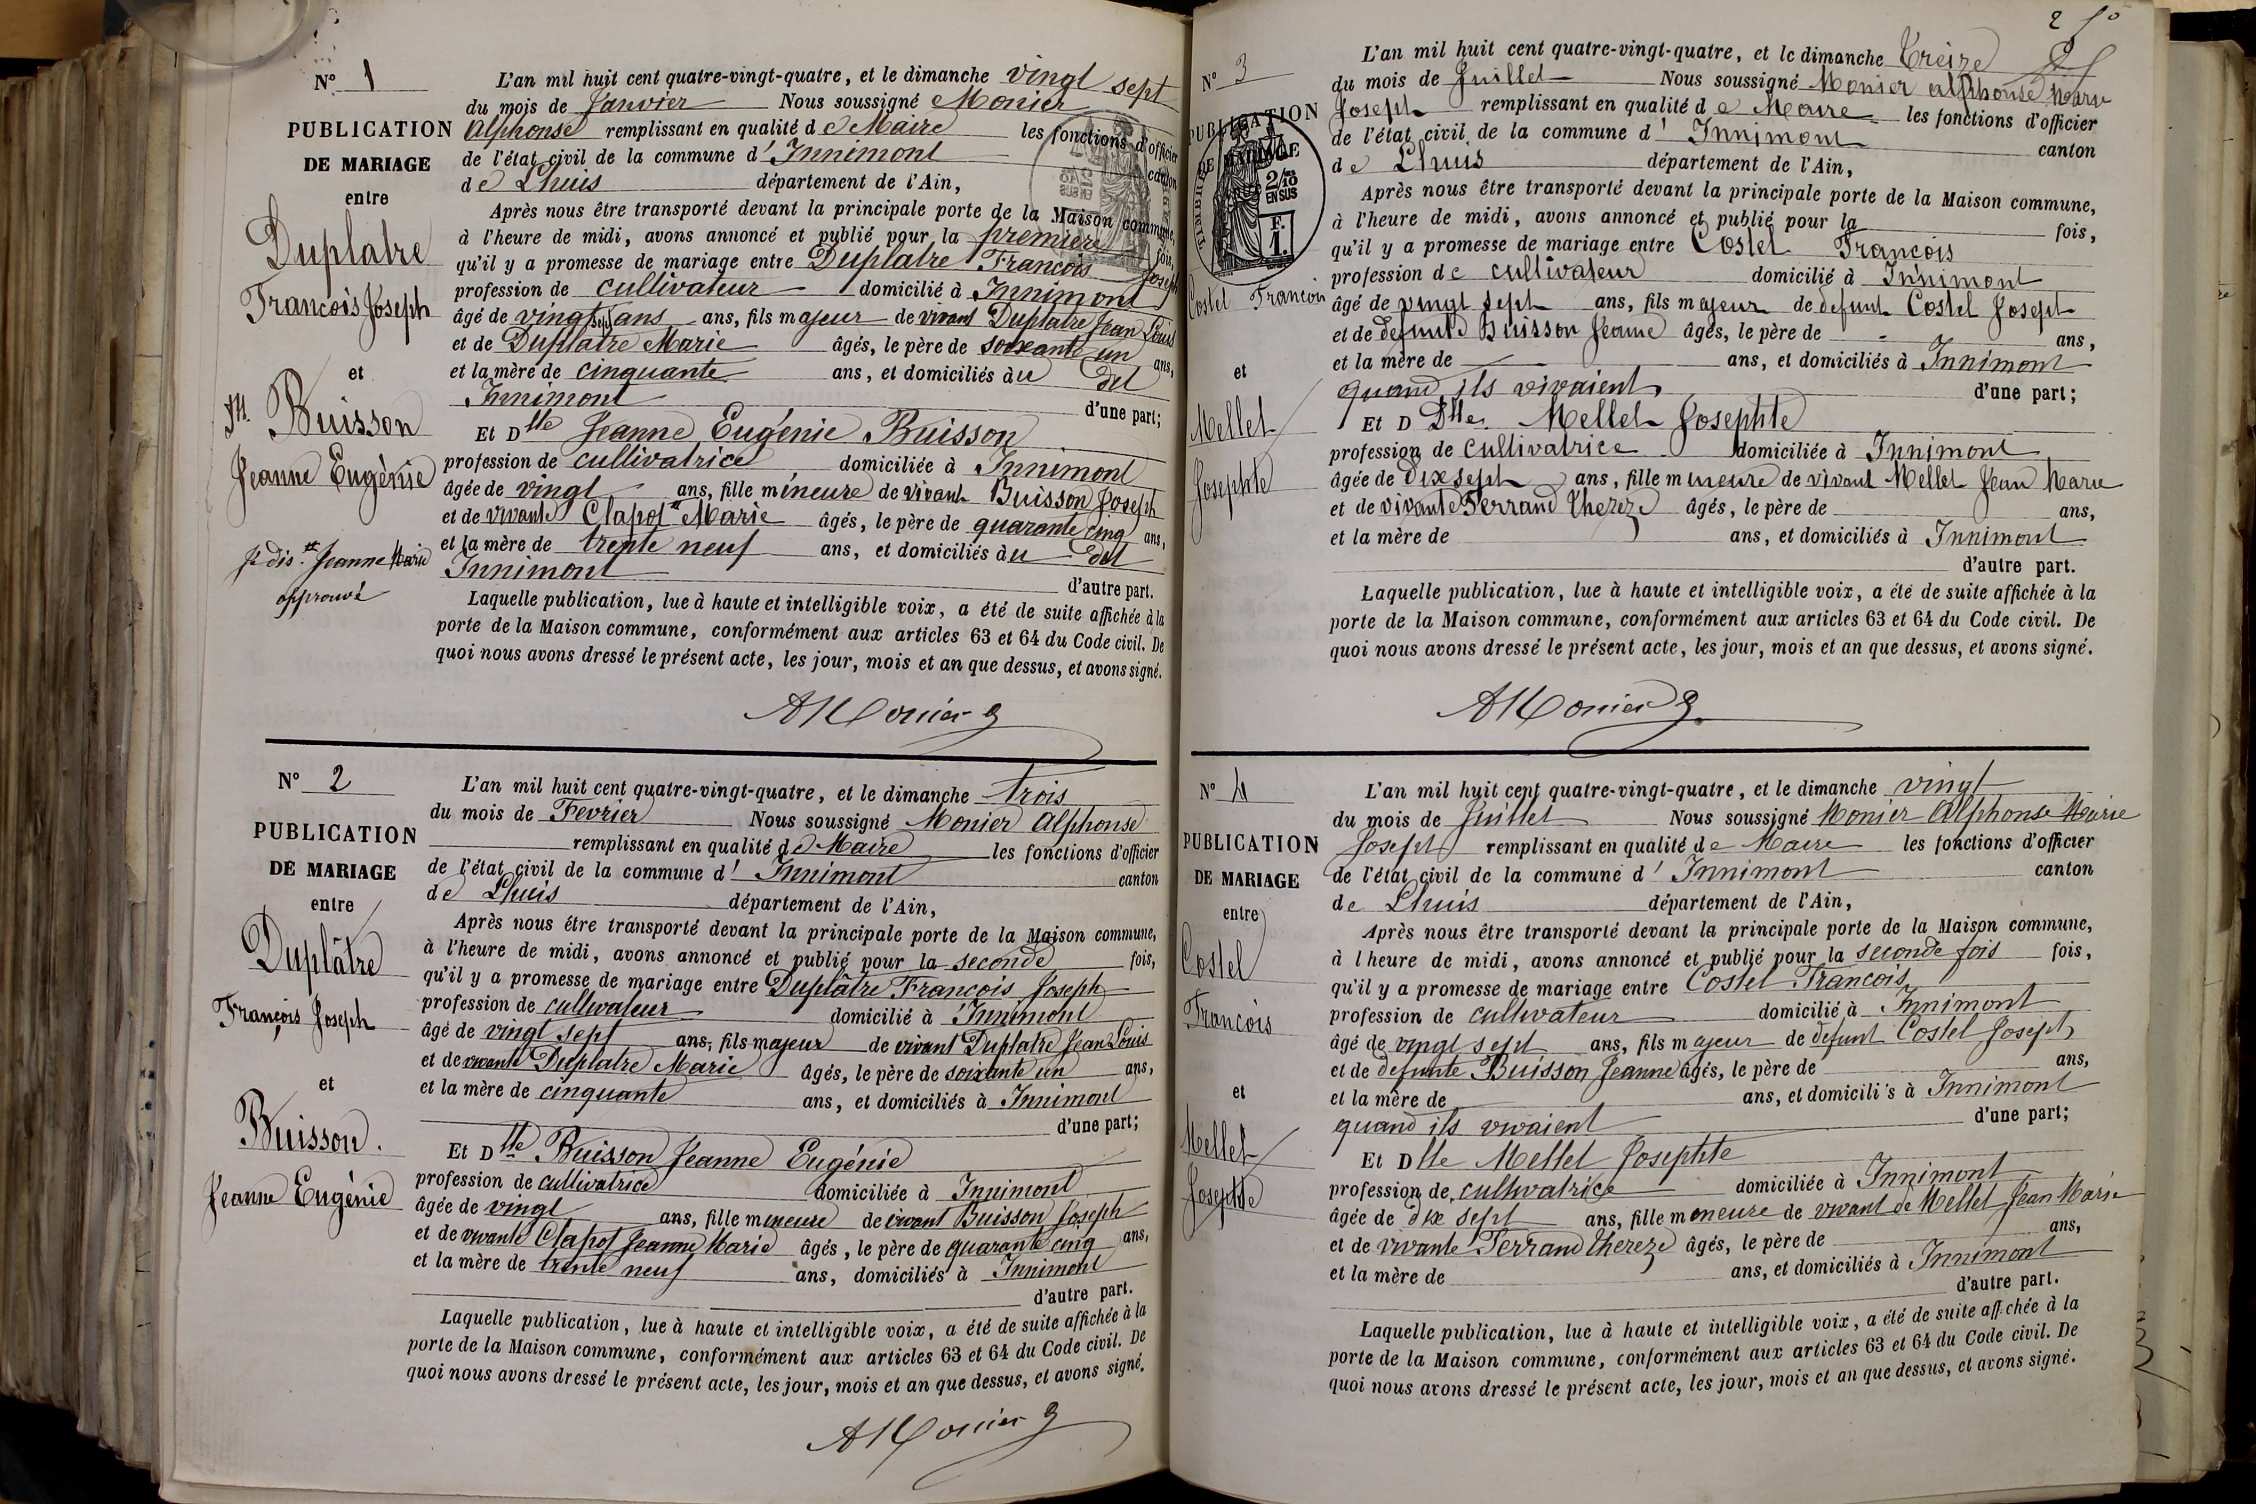 N° 1
PUBLICATION
DE MARIAGE
entre
Duplatre
François Joseph
et
Buisson
Jeanne Eugénie
Je dis: Jeanne Marie
approuvé
L'an mil huit cent quatre-vingt-quatre, et le dimanche vingt sept
du mois de Janvier Nous soussigné Monier
Alphonse remplissant en qualité de Maire les fonctions d'officier
de l'état civil de la commune d'Innimont canton
de Lhuis département de l'Ain,
Après nous être transporté devant la principale porte de la Maison commune,
à l'heure de midi, avons annoncé et publié pour la première fois,
qu'il y a promesse de mariage entre Duplatre François Joseph
profession de cultivateur domicilié à Innimont
âgé de vingt sept ans ans, fils majeur de vivant Duplatre Jean Louis
et de Duplatre Marie âgés, le père de soixante un ans,
et la mère de cinquante ans, et domiciliés à u dit
Innimont d'une part;
Et Dlle Jeanne Eugénie Buisson
profession de cultivatrice domiciliée à Innimont
âgée de vingt ans, fille mineure de vivant Buisson Joseph
et de vivante Clapot Marie âgés, le père de quarante cinq ans,
et la mère de trente neuf ans, et domiciliés à u dit
Innimont d'autre part.
Laquelle publication, lue à haute et intelligible voix, a été de suite affichée à la
porte de la Maison commune, conformément aux articles 63 et 64 du Code civil. De
quoi nous avons dressé le présent acte, les jour, mois et an que dessus, et avons signé.
AMonier
N° 2
PUBLICATION
DE MARIAGE
entre
Duplâtre
François Joseph
et
Buisson.
Jeanne Eugénie
L'an mil huit cent quatre-vingt-quatre, et le dimanche trois
du mois de Fevrier Nous soussigné Monier Alphonse
remplissant en qualité de Maire les fonctions d'officier
de l'état civil de la commune d'Innimont canton
de Lhuis département de l'Ain,
Après nous être transporté devant la principale porte de la Maison commune,
à l'heure de midi, avons annoncé et publié pour la seconde fois,
qu'il y a promesse de mariage entre Duplâtre François Joseph
profession de cultivateur domicilié à Innimont
âgé de vingt sept ans, fils majeur de vivant Duplatre Jean Louis
et de vivante Duplatre Marie âgés, le père de soixante un ans,
et la mère de cinquante ans, et domiciliés à Innimont
d'une part;
Et Dlle Buisson Jeanne Eugénie
profession de cultivatrice domiciliée à Innimont
âgée de vingt ans, fille mineure de vivant Buisson Joseph
et de vivante Clapot Jeanne Marie âgés, le père de quarante cinq ans,
et la mère de trente neuf ans, domiciliés à Innimont
d'autre part.
Laquelle publication, lue à haute et intelligible voix, a été de suite affichée à la
porte de la Maison commune, conformément aux articles 63 et 64 du Code civil. De
quoi nous avons dressé le présent acte, les jour, mois et an que dessus, et avons signé.
AMonier
N° 3
PUBLICATION
DE MARIAGE
TIMBRE
2/10
EN SUS
F.
1.
Costel François
et
Mellet
Josephte
L'an mil huit cent quatre-vingt-quatre, et le dimanche Treize
du mois de Juillet Nous soussigné Monier Alphonse Marie
Joseph remplissant en qualité de Maire les fonctions d'officier
de l'état civil de la commune d'Innimont canton
de Lhuis département de l'Ain,
Après nous être transporté devant la principale porte de la Maison commune,
à l'heure de midi, avons annoncé et publié pour la fois,
qu'il y a promesse de mariage entre Costel François
profession de cultivateur domicilié à Innimont
âgé de vingt sept ans, fils majeur de defunt Costel Joseph
et de defunte Buisson Jeanne âgés, le père de ans,
et la mère de ans, et domiciliés à Innimont
quand ils vivaient d'une part;
Et D Dlle. Mellet Josephte
profession de cultivatrice domiciliée à Innimont
âgée de dix sept ans, fille mineure de vivant Mellet Jean Marie
et de vivante Ferrand Thereze âgés, le père de ans,
et la mère de ans, et domiciliés à Innimont
d'autre part.
Laquelle publication, lue à haute et intelligible voix, a été de suite affichée à la
porte de la Maison commune, conformément aux articles 63 et 64 du Code civil. De
quoi nous avons dressé le présent acte, les jour, mois et an que dessus, et avons signé.
AMonier
N° 4
PUBLICATION
DE MARIAGE
entre
Costel
François
et
Mellet
Josephte
L'an mil huit cent quatre-vingt-quatre, et le dimanche vingt
du mois de Juillet Nous soussigné Monier Alphonse Marie
Joseph remplissant en qualité de Maire les fonctions d'officier
de l'état civil de la commune d'Innimont canton
de Lhuis département de l'Ain,
Après nous être transporté devant la principale porte de la Maison commune,
à l heure de midi, avons annoncé et publié pour la seconde fois fois,
qu'il y a promesse de mariage entre Costel François
profession de cultivateur domicilié à Innimont
âgé de vingt sept ans, fils majeur de defunt Costel Joseph
et de defunte Buisson Jeanne âgés, le père de ans,
et la mère de ans, et domicili's à Innimont
quand ils vivaient d'une part;
Et Dlle Mellet Josephte
profession de cultivatrice domiciliée à Innimont
âgée de dix sept ans, fille meneure de vivant de Mellet Jean Marie
et de vivante Ferrand Thereze âgés, le père de ans,
et la mère de ans, et domiciliés à Innimont
d'autre part.
Laquelle publication, lue à haute et intelligible voix, a été de suite aff chée à la
porte de la Maison commune, conformément aux articles 63 et 64 du Code civil. De
quoi nous avons dressé le présent acte, les jour, mois et an que dessus, et avons signé.